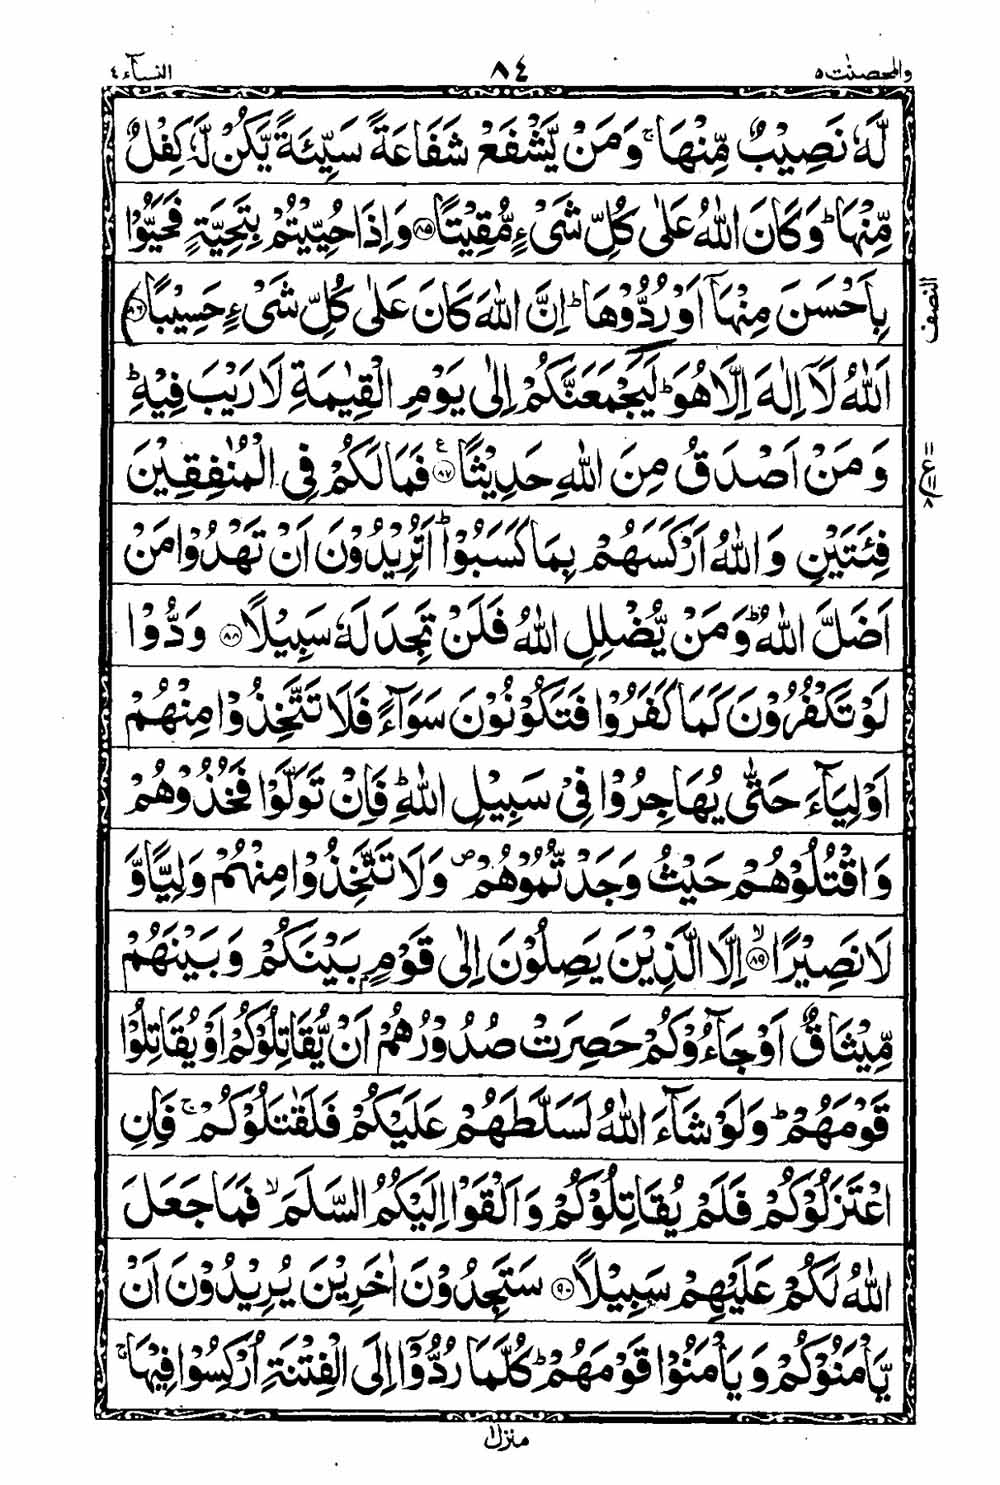 والمحصنت ٥ ٨٤ النسآء ٤
لَّهٗ نَصِيْبٌ مِّنْهَا ۚ وَمَنْ يَّشْفَعْ شَفَاعَةً سَيِّئَةً يَّكُنْ لَّهٗ كِفْلٌ
مِّنْهَا ؕ وَكَانَ اللّٰهُ عَلٰى كُلِّ شَىْءٍ مُّقِيْتًا ﴿٨٥﴾ وَاِذَا حُيِّيْتُمْ بِتَحِيَّةٍ فَحَيُّوْا
بِاَحْسَنَ مِنْهَآ اَوْ رُدُّوْهَا ؕ اِنَّ اللّٰهَ كَانَ عَلٰى كُلِّ شَىْءٍ حَسِيْبًا ﴿٨٦﴾
النصف
اَللّٰهُ لَآ اِلٰهَ اِلَّا هُوَ ؕ لَيَجْمَعَنَّكُمْ اِلٰى يَوْمِ الْقِيٰمَةِ لَا رَيْبَ فِيْهِ ؕ
وَمَنْ اَصْدَقُ مِنَ اللّٰهِ حَدِيْثًا ﴿٨٧﴾ ع فَمَا لَكُمْ فِى الْمُنٰفِقِيْنَ
ع ٨
فِئَتَيْنِ وَاللّٰهُ اَرْكَسَهُمْ بِمَا كَسَبُوْا ؕ اَتُرِيْدُوْنَ اَنْ تَهْدُوْا مَنْ
اَضَلَّ اللّٰهُ ؕ وَمَنْ يُّضْلِلِ اللّٰهُ فَلَنْ تَجِدَ لَهٗ سَبِيْلًا ﴿٨٨﴾ وَدُّوْا
لَوْ تَكْفُرُوْنَ كَمَا كَفَرُوْا فَتَكُوْنُوْنَ سَوَآءً فَلَا تَتَّخِذُوْا مِنْهُمْ
اَوْلِيَآءَ حَتّٰى يُهَاجِرُوْا فِىْ سَبِيْلِ اللّٰهِ ؕ فَاِنْ تَوَلَّوْا فَخُذُوْهُمْ
وَاقْتُلُوْهُمْ حَيْثُ وَجَدْتُّمُوْهُمْ ۪ وَلَا تَتَّخِذُوْا مِنْهُمْ وَلِيًّا وَّ
لَا نَصِيْرًا ۙ﴿٨٩﴾ اِلَّا الَّذِيْنَ يَصِلُوْنَ اِلٰى قَوْمٍۭ بَيْنَكُمْ وَبَيْنَهُمْ
مِّيْثَاقٌ اَوْ جَآءُوْكُمْ حَصِرَتْ صُدُوْرُهُمْ اَنْ يُّقَاتِلُوْكُمْ اَوْ يُقَاتِلُوْا
قَوْمَهُمْ ؕ وَلَوْ شَآءَ اللّٰهُ لَسَلَّطَهُمْ عَلَيْكُمْ فَلَقٰتَلُوْكُمْ ۚ فَاِنِ
اعْتَزَلُوْكُمْ فَلَمْ يُقَاتِلُوْكُمْ وَاَلْقَوْا اِلَيْكُمُ السَّلَمَ ۙ فَمَا جَعَلَ
اللّٰهُ لَكُمْ عَلَيْهِمْ سَبِيْلًا ﴿٩٠﴾ سَتَجِدُوْنَ اٰخَرِيْنَ يُرِيْدُوْنَ اَنْ
يَّاْمَنُوْكُمْ وَيَاْمَنُوْا قَوْمَهُمْ ؕ كُلَّمَا رُدُّوْٓا اِلَى الْفِتْنَةِ اُرْكِسُوْا فِيْهَا ۚ
منزل ١